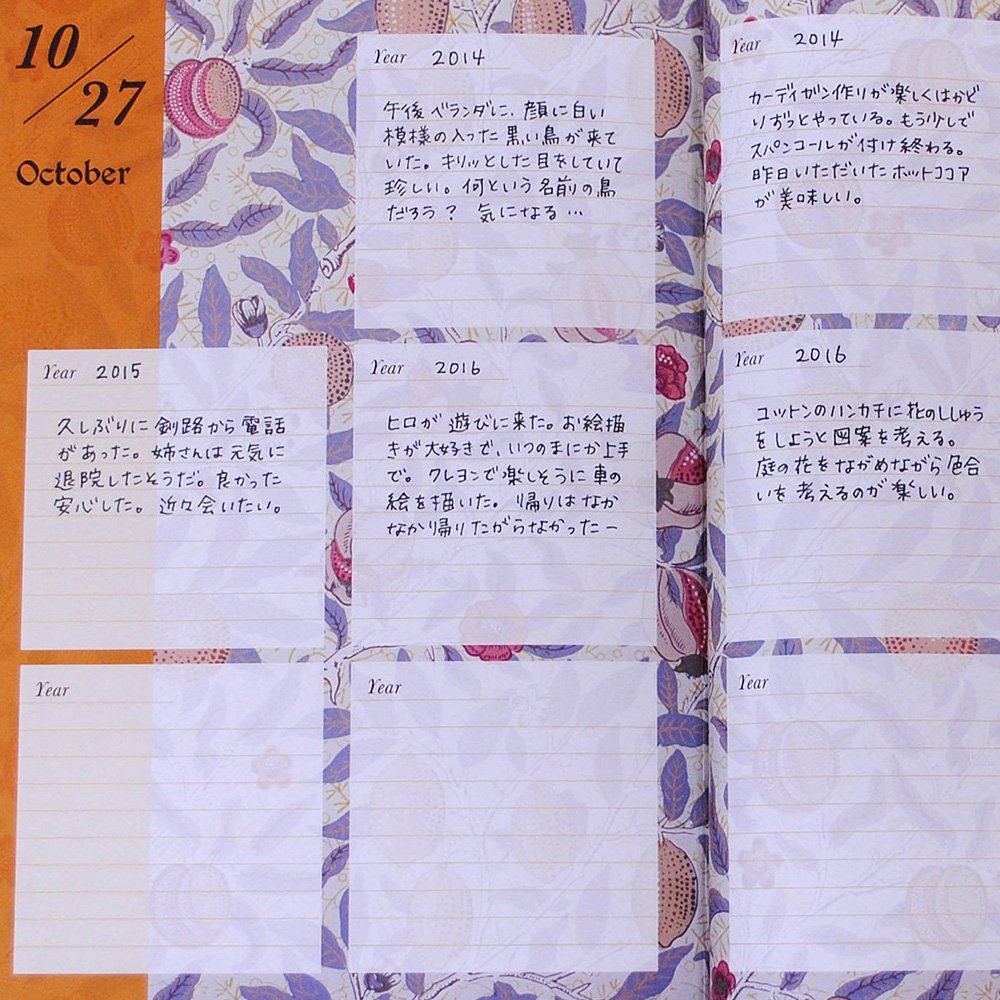 10/27
October
Year 2014
午後ベランダに、顔に白い
模様の入った黒い鳥が来て
いた。キリッとした目をしていて
珍しい。何という名前の鳥
だろう？ 気になる…
Year 2014
カーディガン作りが楽しくはかど
りずっとやっている。もう少しで
スパンコールが付け終わる。
昨日いただいたホットココア
が美味しい。
Year 2015
久しぶりに釧路から電話
があった。姉さんは元気に
退院したそうだ。良かった
安心した。近々会いたい。
Year 2016
ヒロが遊びに来た。お絵描
きが大好きで、いつのまにか上手
で。クレヨンで楽しそうに車の
絵を描いた。帰りはなか
なか帰りたがらなかったー
Year 2016
コットンのハンカチに花のししゅう
をしようと図案を考える。
庭の花をながめながら色合
いを考えるのが楽しい。
Year
Year
Year